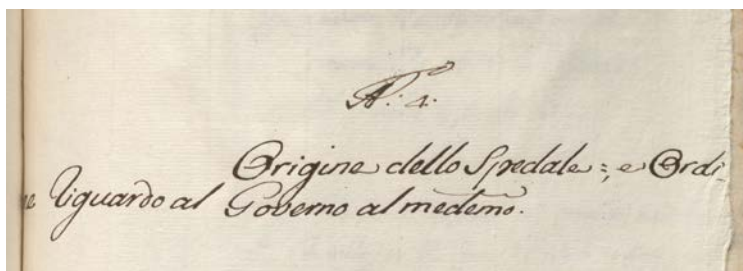 N.º 4.
Origine dello Spedale; e Ordi
ne riguardo al Governo al medemo.